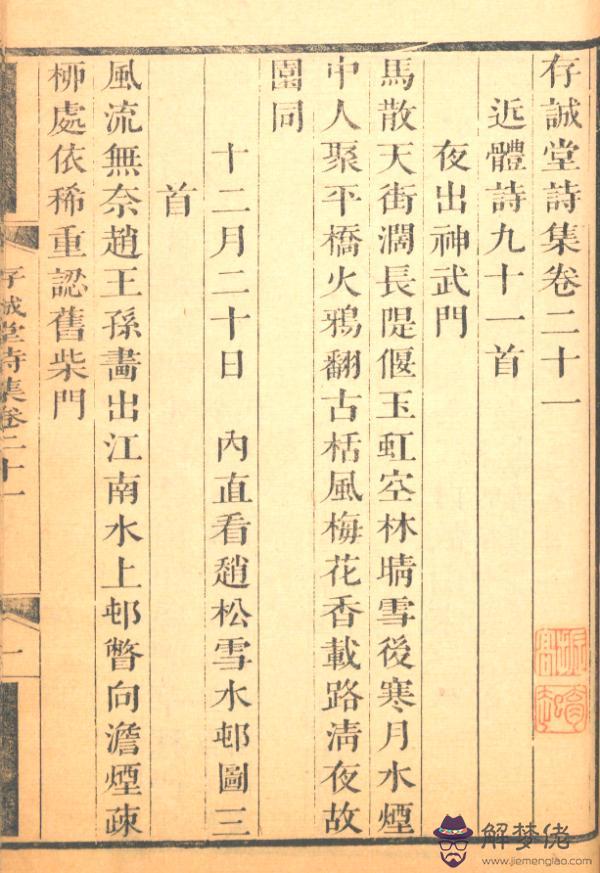 存誠堂詩集卷二十一
近體詩九十一首
夜出神武門
馬散天街濶長隄偃玉虹空林晴雪後寒月水煙
中人聚平橋火鴉翻古栝風梅花香載路清夜故
園同
十二月二十日 內直看趙松雪水邨圖三
首
風流無奈趙王孫畫出江南水上邨瞥向澹煙疎
柳處依稀重認舊柴門
存誠堂詩集卷二十一
一
解梦佬
www.jiemenglao.com